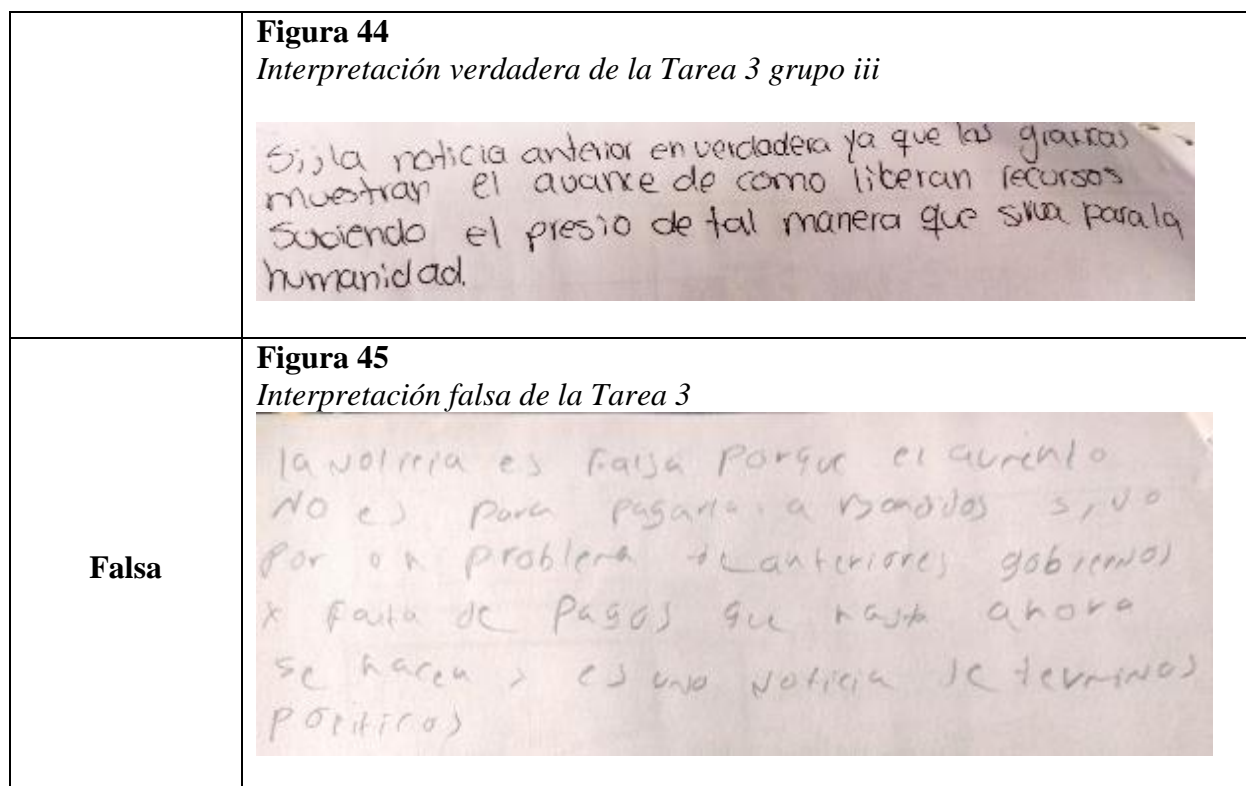 Figura 44
Interpretación verdadera de la Tarea 3 grupo iii
Si, la noticia anterior en verdadera ya que las graficas
muestran el avance de como liberan recursos
subiendo el presio de tal manera que sirva para la
humanidad.
Falsa
Figura 45
Interpretación falsa de la Tarea 3
la noticia es falsa porque el aumento
NO es para pagarle a Bandidos sino
Por un problema de anteriores gobiernos
x falta de pagos que hasta ahora
se hacen es una noticia de terminos
politicos